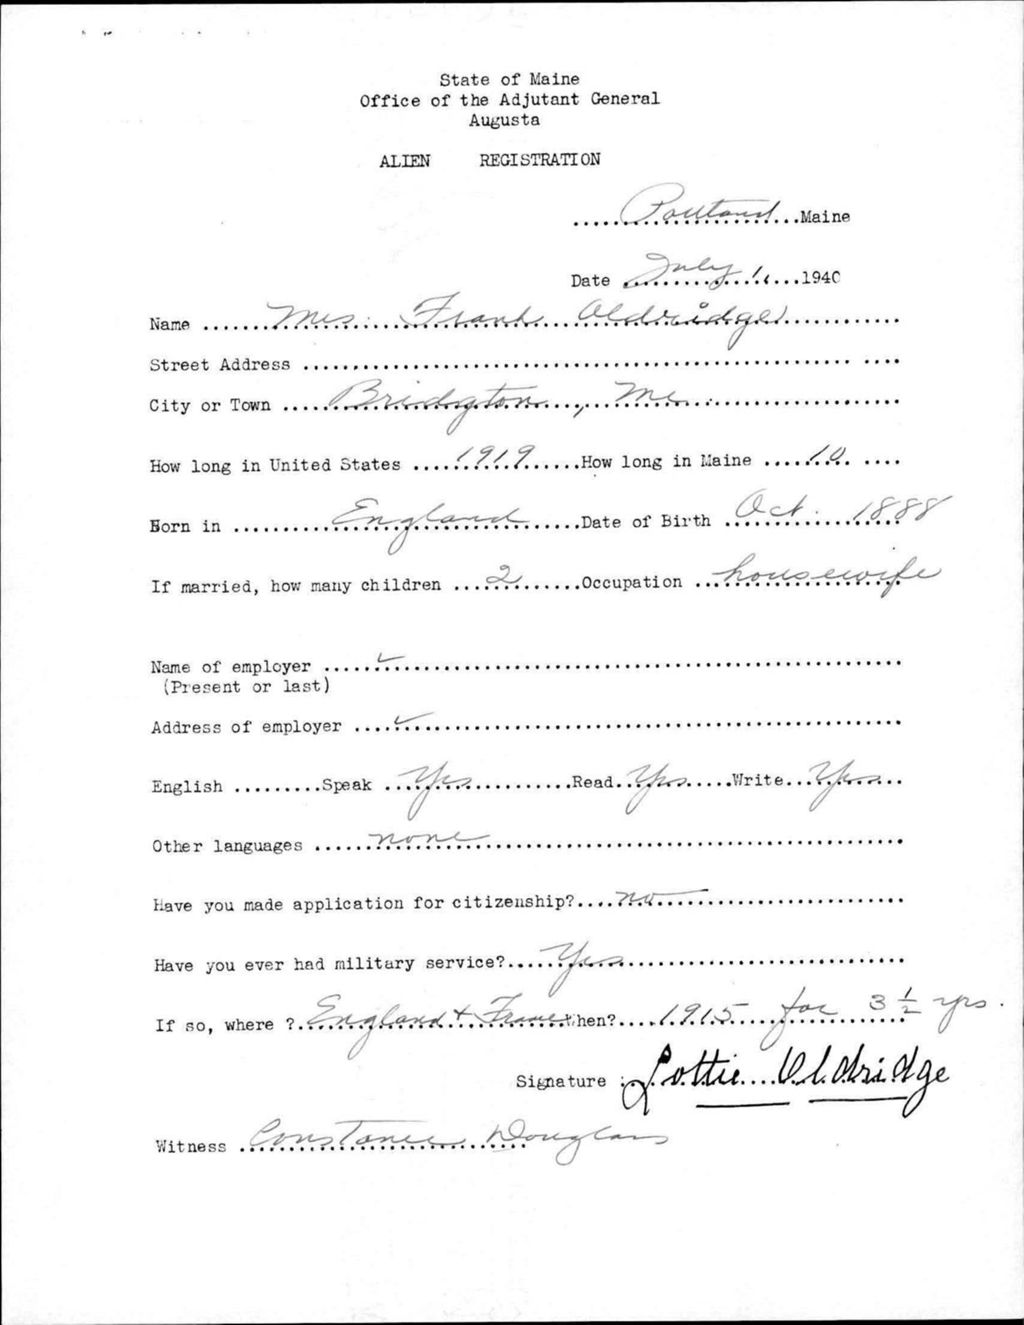 State of Maine
Office of the Adjutant General
Augusta
ALIEN REGISTRATION
Portland Maine
Date July 1, 1940
Name Mrs. Frank Oldridge
Street Address
City or Town Bridgton, Me.
How long in United States 1919 How long in Maine 10
Born in England Date of Birth Oct. 1888
If married, how many children 2 Occupation housewife
Name of employer ✓
(Present or last)
Address of employer ✓
English Speak Yes Read Yes Write Yes
Other languages none
Have you made application for citizenship? no
Have you ever had military service? Yes
If so, where ? England + France When? 1915 for 3 1/2 yrs.
Signature Lottie Oldridge
Witness Constance Douglass